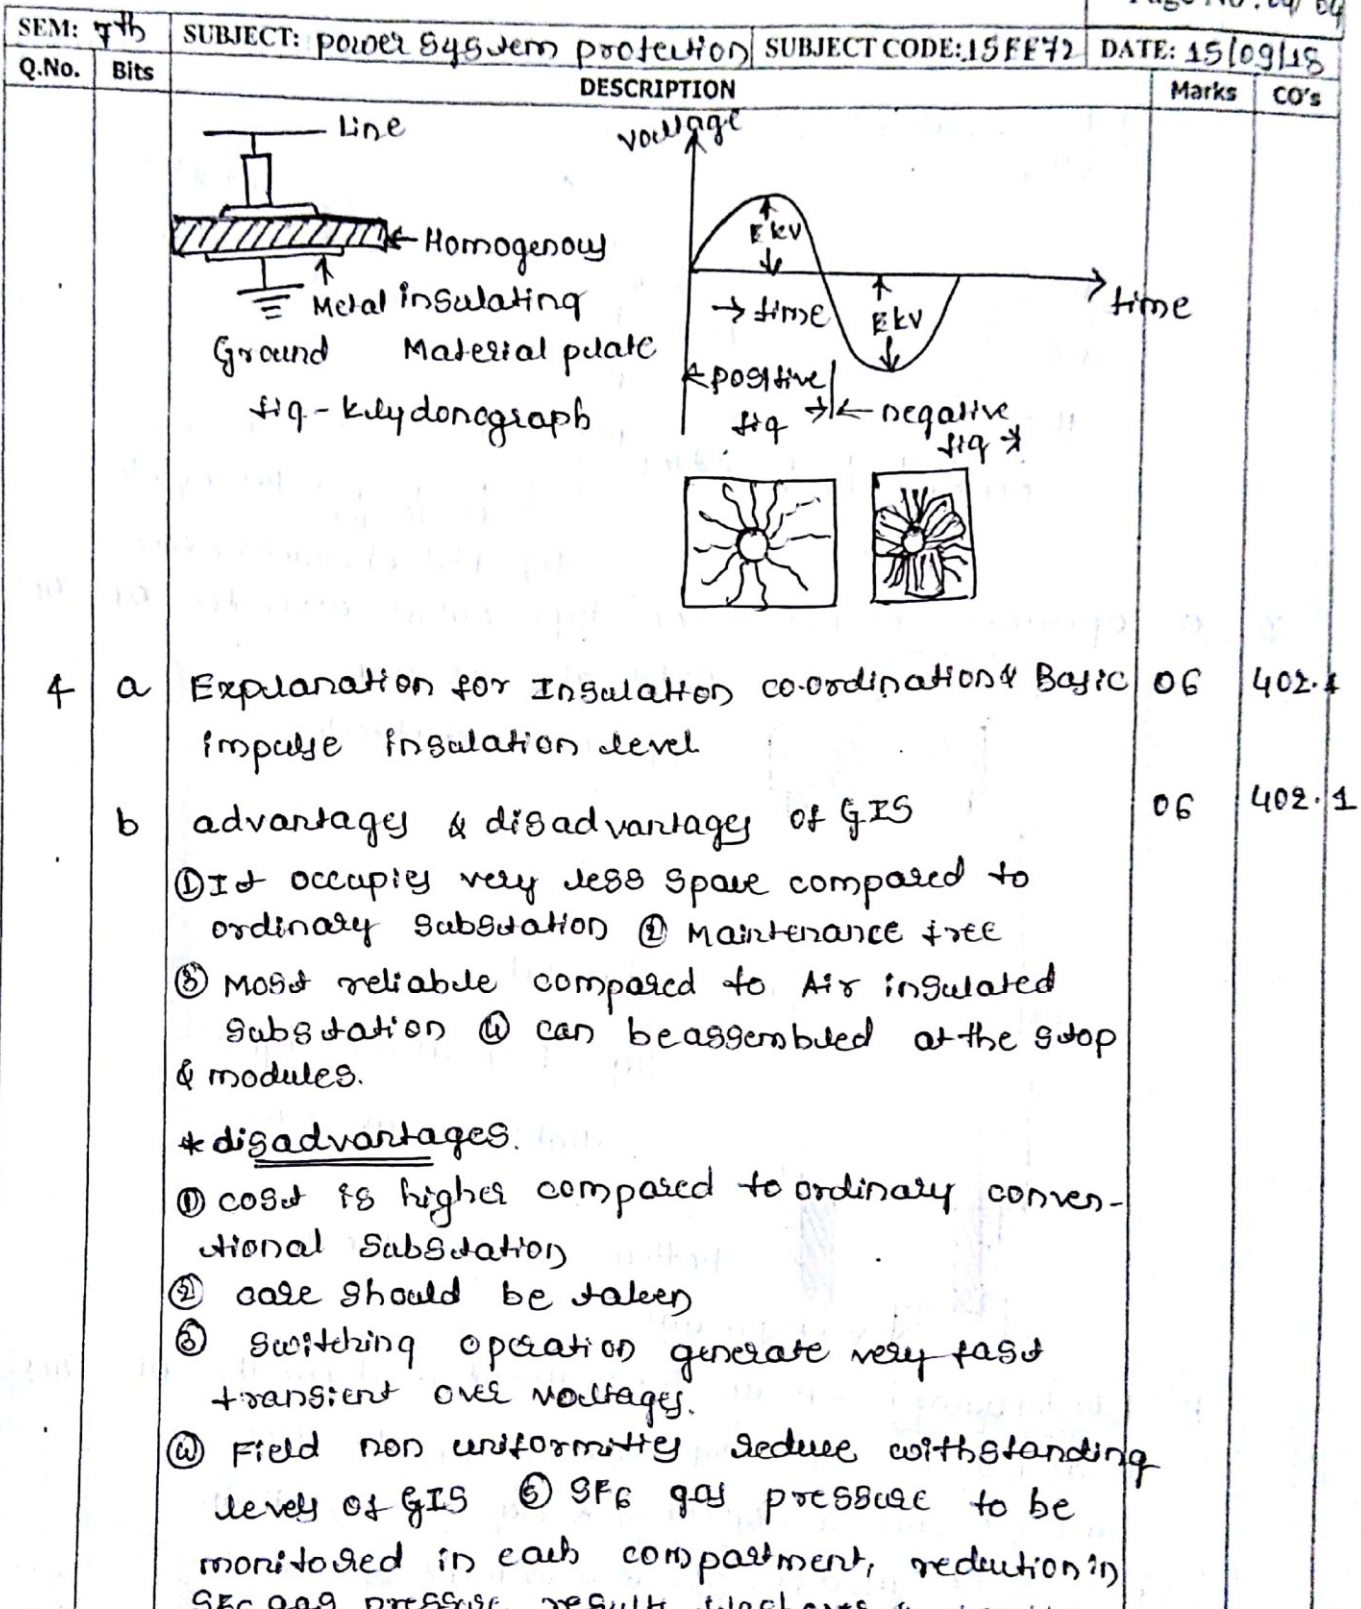 Page No: 04/04
SEM: 7th SUBJECT: power system protection SUBJECT CODE: 15EE72 DATE: 15/09/18
Q.No. Bits DESCRIPTION Marks CO's
Line
voltage
E kv
Homogenous
Metal insulating
Ground Material plate
fig - klydonograph
→ time
E kv
time
positive
fig
negative
fig
4 a Explanation for Insulation co-ordination & Basic 06 402.1
impulse insulation level
b advantages & disadvantages of GIS 06 402.1
① It occupies very less space compared to
ordinary substation ② Maintenance free
③ Most reliable compared to Air insulated
substation ④ can be assembled at the stop
& modules.
* disadvantages.
① cost is higher compared to ordinary conven-
tional substation
② care should be taken
③ switching operation generate very fast
transient over voltages.
④ Field non uniformities reduce withstanding
levels of GIS ⑤ SF6 gas pressure to be
monitored in each compartment, reduction in
SF6 gas pressure results